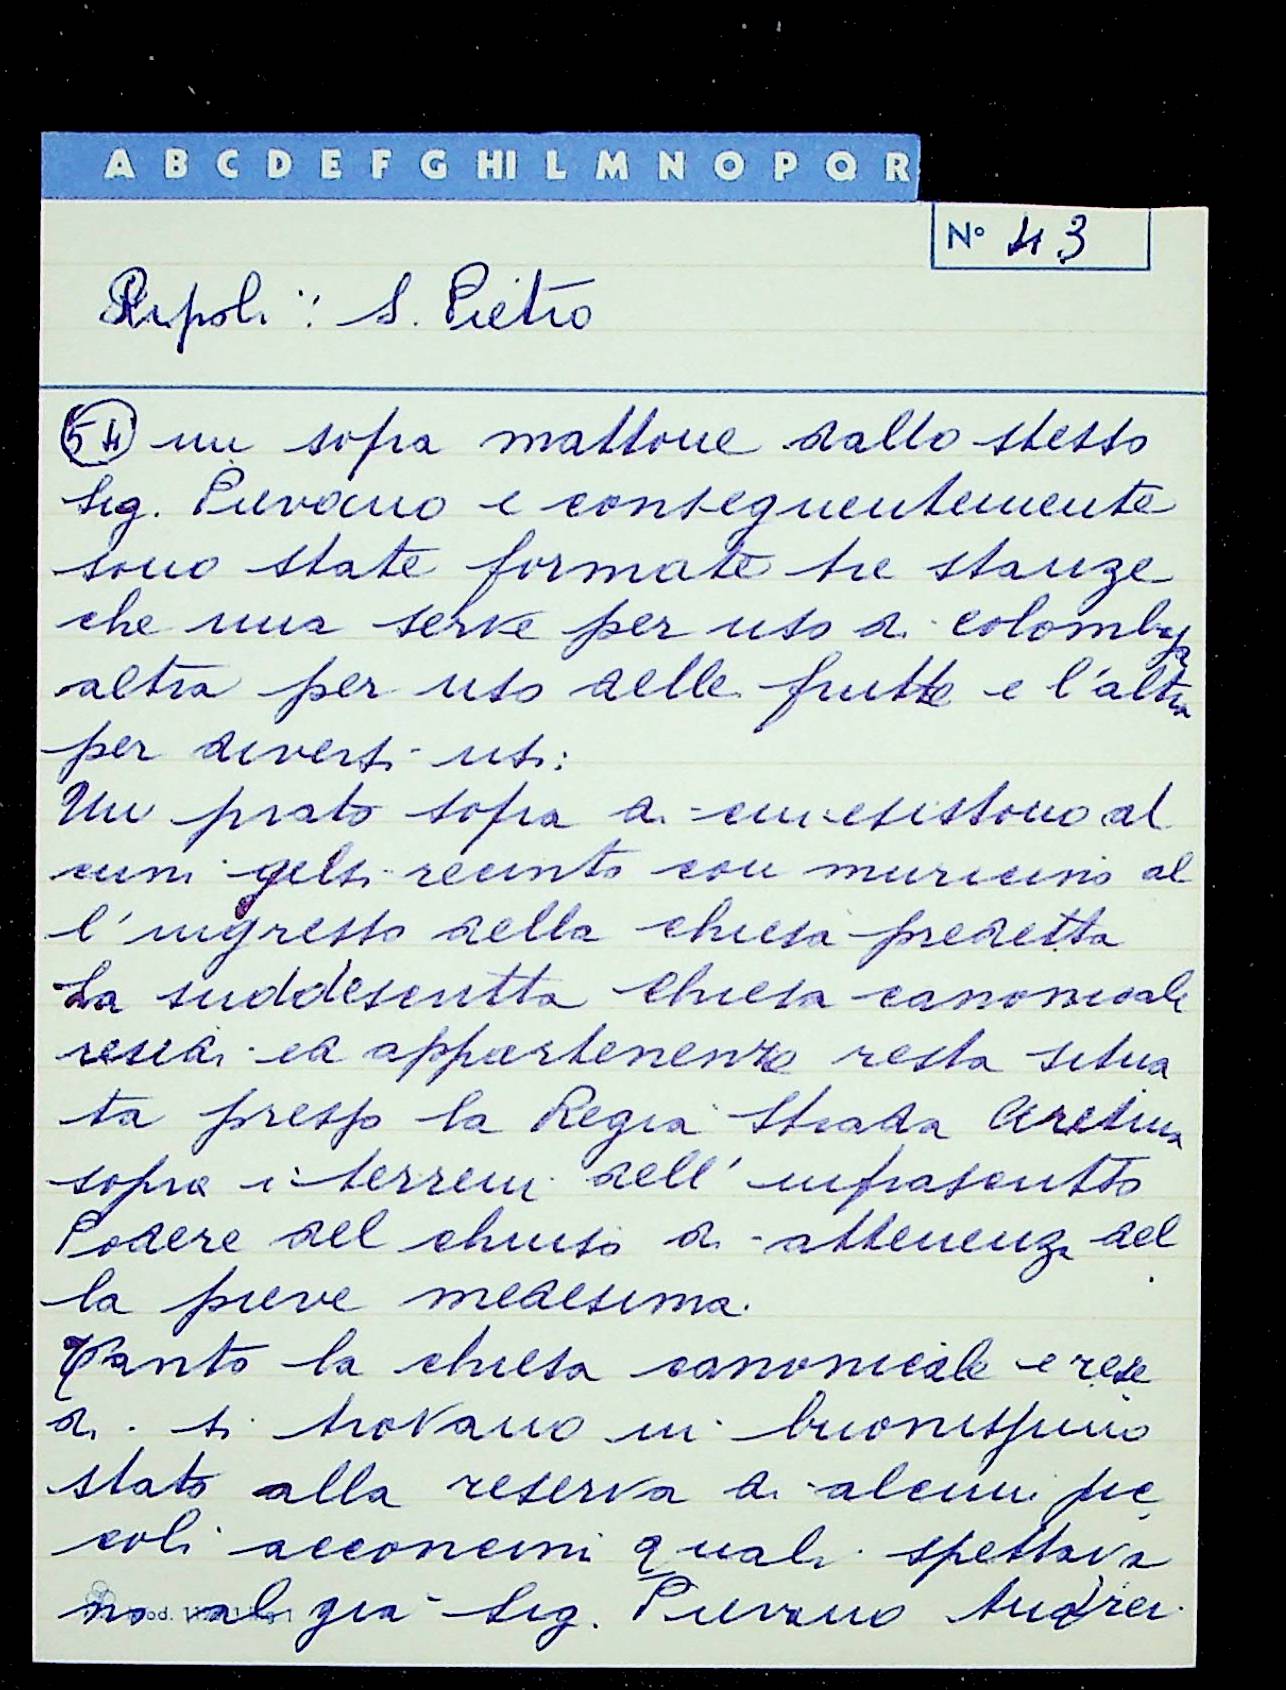 A B C D E F G HI L M N O P Q R
N° 43
Ripoli: S. Pietro
54 un sopra mattone dallo stesso
Sig. Pievano e conseguentemente
sono state formate tre stanze
che una serve per uso di colombaja
altra per uso delle frutte e l'altra
per diversi usi:
Un prato sopra di cui esistono al
cuni gelsi recinto con muricino al
l'ingresso della chiesa predetta
La suddescritta chiesa canonicale
resedi ed appartenenze resta situa
ta presso la Regia Strada Aretina
sopra i terreni dell'infrascritto
Podere del chiuso di attenenza del
la pieve medesima.
Tanto la chiesa canonicale e rese
di si trovano in buonissimo
stato alla reserva di alcuni pic
coli acconcimi quali spettava
no al già Sig. Pievano Andrei